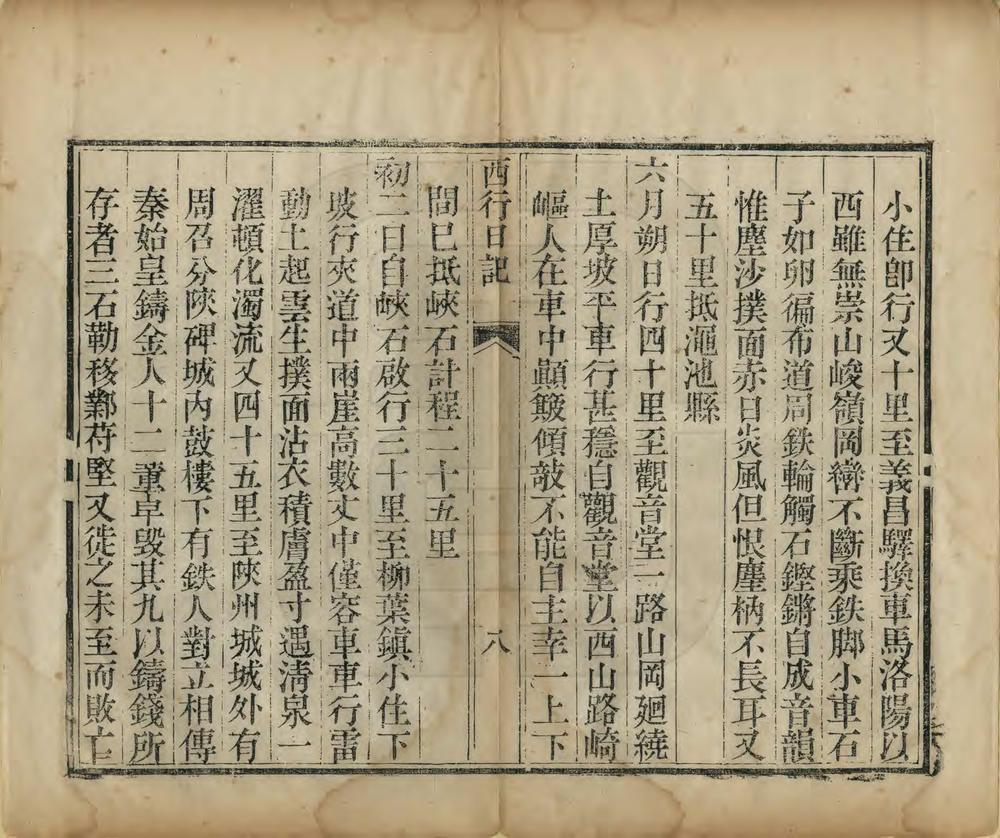 小住卽行又十里至義昌驛換車馬洛陽以
西雖無崇山峻嶺岡巒不斷乘鉄脚小車石
子如卵徧布道周鉄輪觸石鏗鏘自成音韻
惟塵沙撲面赤日炎風但恨塵柄不長耳又
五十里抵澠池縣
六月朔日行四十里至觀音堂一路山岡廻繞
土厚坡平車行甚穩自觀音堂以西山路崎
嶇人在車中顚簸傾敧不能自主幸一上下
西行日記
八
間已抵峽石計程二十五里
初二日自峽石啟行三十里至柳葉鎭小住下
坡行夾道中兩崖高數丈中僅容車車行雷
動土起雲生撲面沾衣積膚盈寸遇淸泉一
濯頓化濁流又四十五里至陝州城城外有
周召分陝碑城內鼓樓下有鉄人對立相傳
秦始皇鑄金人十二董卓毀其九以鑄錢所
存者三石勒移鄴苻堅又徙之未至而敗亡